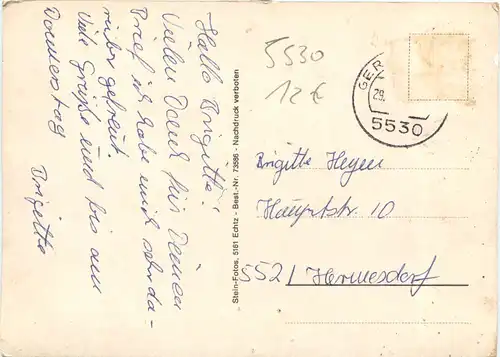 Hallo Brigitte!
Vielen Dank für Deinen
Brief ich habe mich sehr da-
rüber gefreut.
Viele Grüße und bis am
Donnerstag
Brigitte
Stein-Fotos, 5161 Echtz - Best.-Nr. 73586 - Nachdruck verboten
5530
12 €
GER
29.
5530
Brigitte Heyen
Hauptstr. 10
5521 Hermesdorf